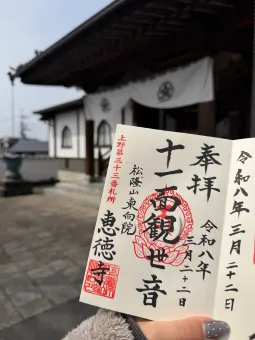 奉拝
令和八年
三月二十二日
十一面観世音
上野第三十三番札所
松隆山東向院
恵徳寺
令和八年三月二十二日